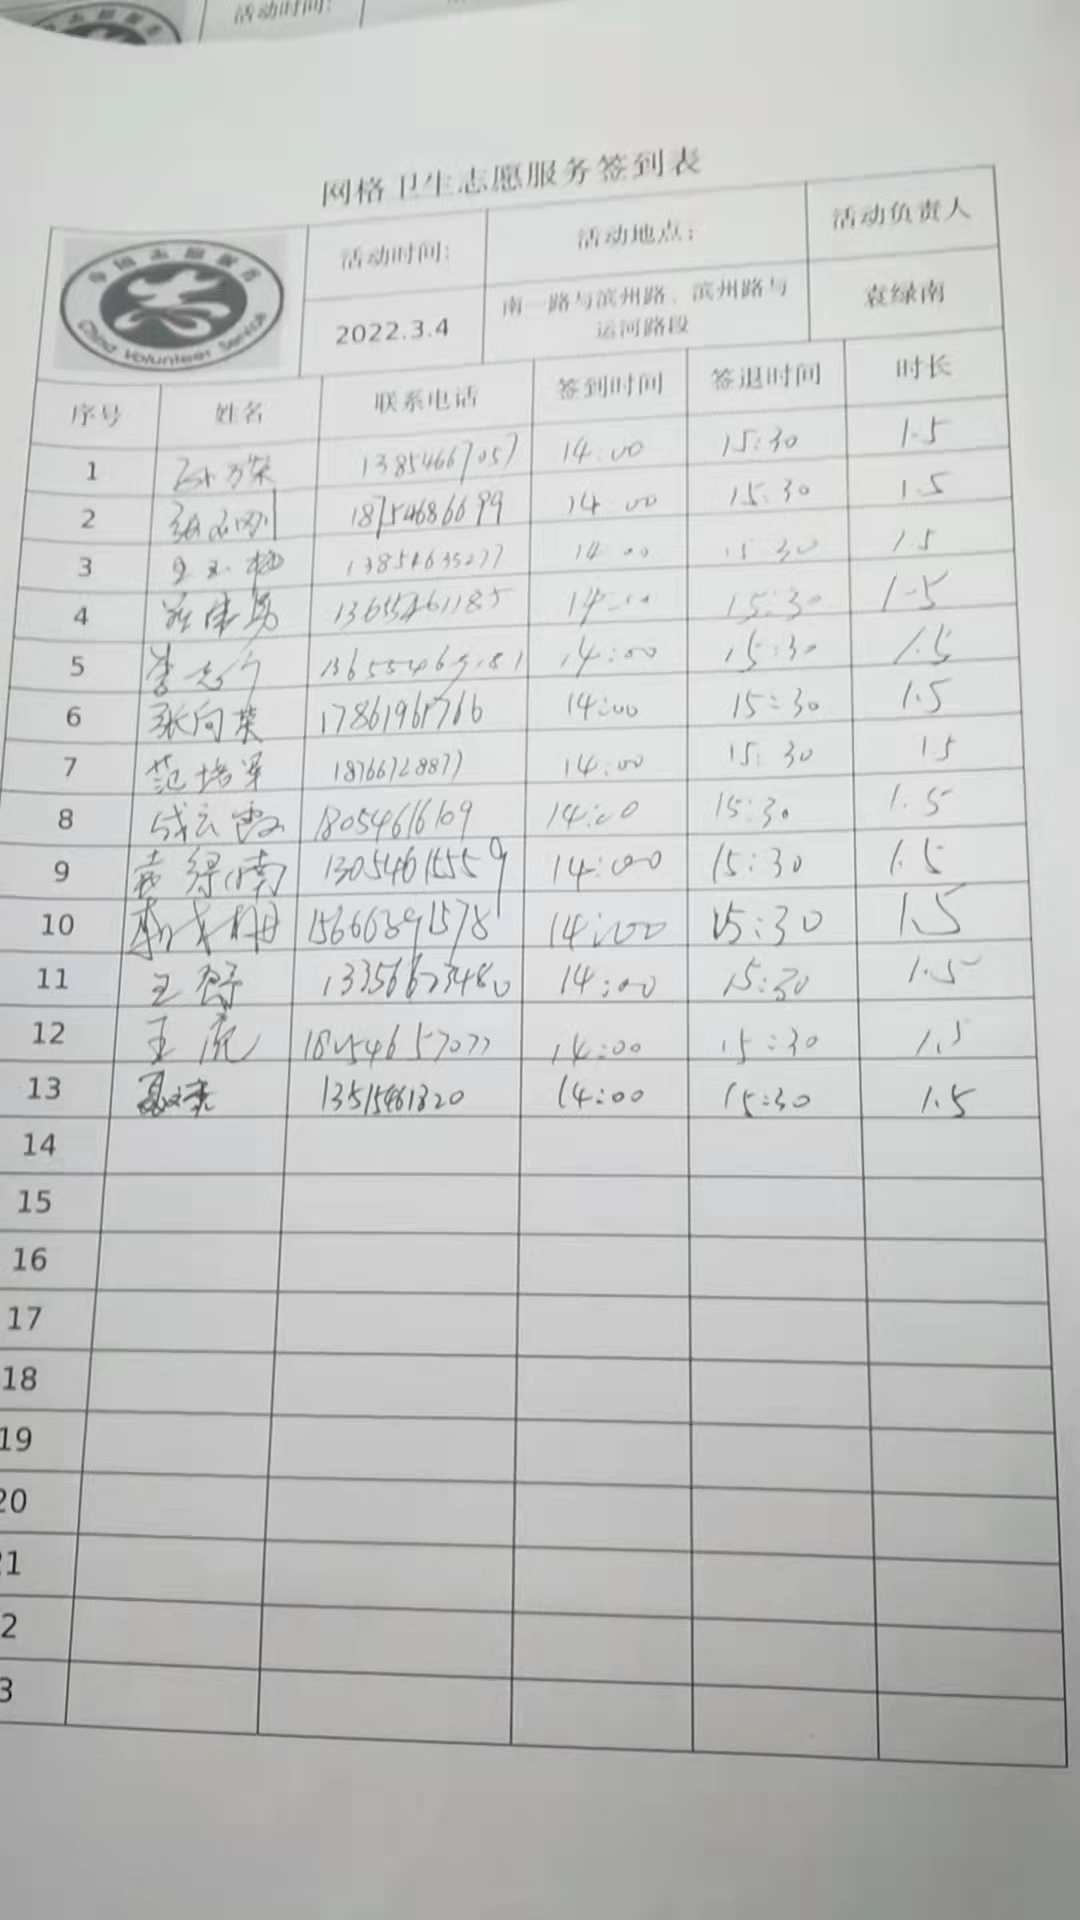 活动时间:
网格卫生志愿服务签到表
活动时间: 活动地点: 活动负责人
China Volunteer Service
2022.3.4 南一路与滨州路、滨州路与 袁绿南
运河路段
序号 姓名 联系电话 签到时间 签退时间 时长
1 13854667057 14:00 15:30 1.5
2 18754686699 14:00 15:30 1.5
3 13854635277 14:00 15:30 1.5
4 14:00 15:30 1.5
5 14:00 15:30 1.5
6 张向英 17861961766 14:00 15:30 1.5
7 范培军 18766728877 14:00 15:30 1.5
8 成云霞 18054616109 14:00 15:30 1.5
9 袁绿南 13054615559 14:00 15:30 1.5
10 15666391578 14:00 15:30 1.5
11 王舒 13356623480 14:00 15:30 1.5
12 王虎 18254657077 14:00 15:30 1.5
13 13515461320 14:00 15:30 1.5
14
15
16
17
18
19
20
21
2
3